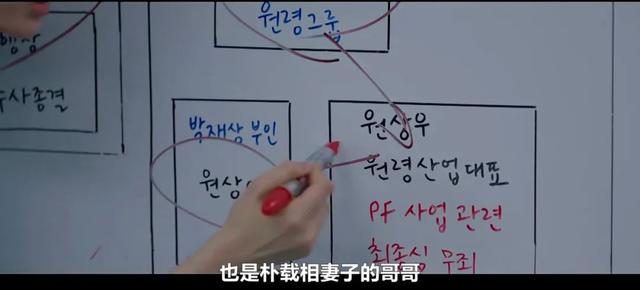 원령그룹
사종결
박재상 부인
원상
원상우
원령산업 대표
PF 사업 관련
최종심 무죄
也是朴载相妻子的哥哥